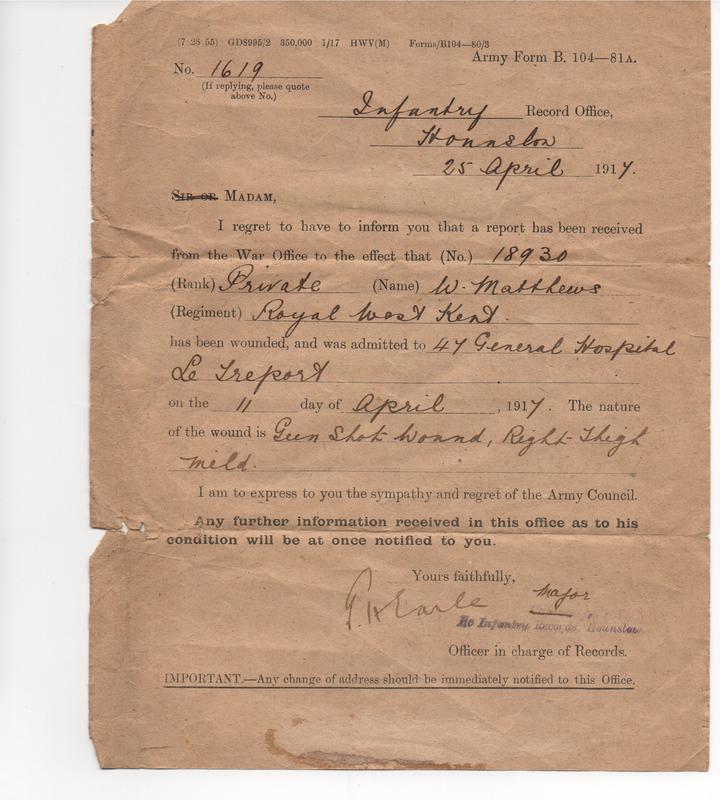 (7 28 55) GD8995/2 350,000 1/17 HWV(M) Forms/B104—80/3
Army Form B. 104—81A.
No. 1619
(If replying, please quote
above No.)
Infantry Record Office,
Hounslow
25 April 1917.
SIR OR MADAM,
I regret to have to inform you that a report has been received
from the War Office to the effect that (No.) 18930
(Rank) Private (Name) W. Matthews
(Regiment) Royal West Kent.
has been wounded, and was admitted to 47 General Hospital
Le Treport
on the 11 day of April, 1917. The nature
of the wound is Gun Shot Wound, Right Thigh
mild.
I am to express to you the sympathy and regret of the Army Council.
Any further information received in this office as to his
condition will be at once notified to you.
Yours faithfully,
Earle Major
Infantry Records, Hounslow.
Officer in charge of Records.
IMPORTANT.—Any change of address should be immediately notified to this Office.